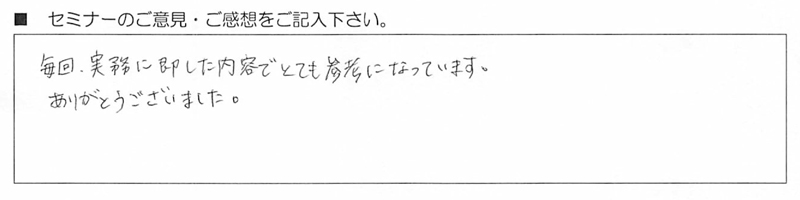 ■ セミナーのご意見・ご感想をご記入下さい。
毎回、実務に即した内容でとても参考になっています。
ありがとうございました。